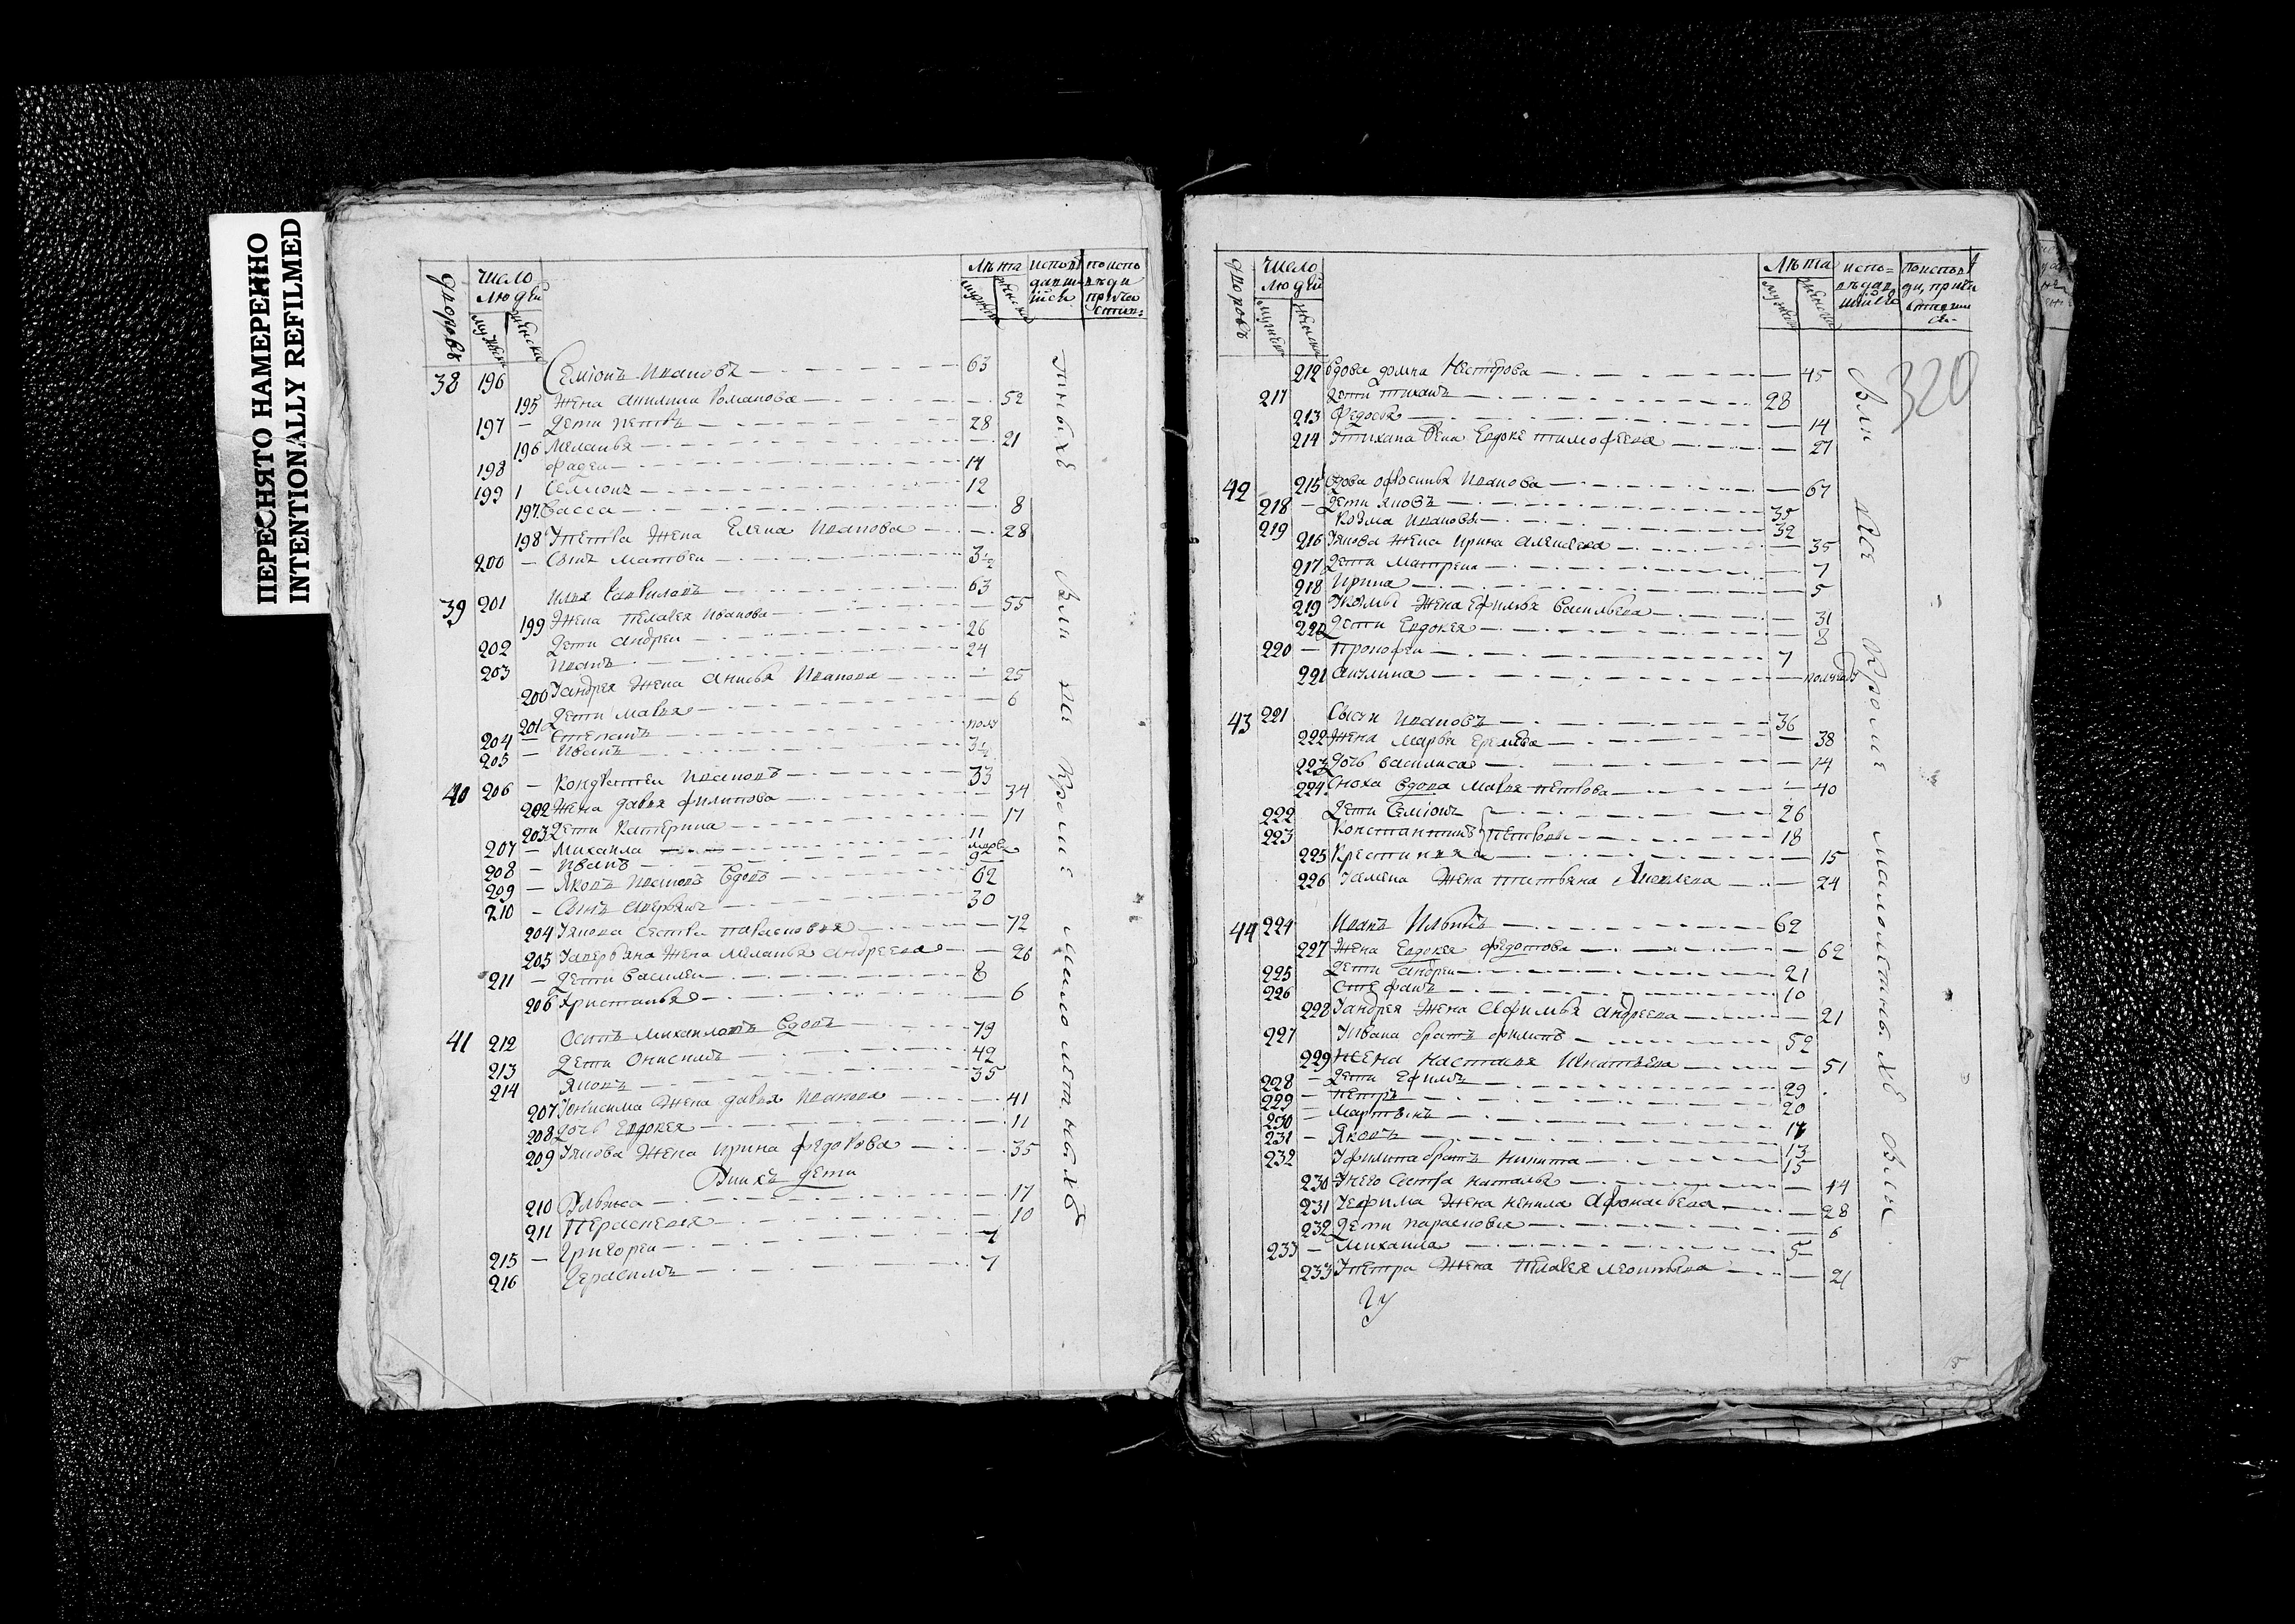 ПЕРЕСНЯТО НАМЕРЕННО
INTENTIONALLY REFILMED
дворовъ
число людей
мужеск
женска
лѣта
мужеск
женска
38 196 Семіонъ Ивановъ 63
195 Жена Акилина Романова 52
197 Дети Петръ 28
196 Меланья 21
198 Фадеи 14
199 1 Семионъ 12
197 Васса 8
198 Упетра Жена Елена Иванова 28
200 Сынъ Матвеи 3½
39 201 Илья Гавриловъ 63
199 Жена Пелагея Иванова 55
202 Дети Андреи 26
203 Иванъ 24
200 Уандрея Жена Анисья Иванова 25
201 Дети Мавья 6
204 Степанъ полу
205 Иванъ 3½
40 206 Кондратеи Ивановъ 33
202 Жена Дарья Филипова 34
203 Дети Катерина 17
207 Михаила 11
208 Иванъ 9
209 Яковъ Ивановъ Вдовъ 62
210 Сынъ Аверьянъ 30
204 Уякова Сестра Парасковья 72
205 Уаверьяна Жена Меланья Андреева 26
211 Дети Василеи 8
206 Христанья 6
41 212 Осипъ Михаиловъ Вдовъ 79
213 Дети Онисимъ 42
214 Яковъ 35
207 Уонисима Жена Дарья Иванова 41
208 Дочь Евдокея 11
209 Уякова Жена Ирина Федорова 35
Унихъ дети
210 17
211 Парасковья 10
215 Григореи 7
216 Герасимъ 7
тныхъ
Вли же Кроме малолетныхъ
дворовъ
число людей
мужеск
женска
лѣта
мужеск
женска
320
212 Вдова Домна Нестерова 45
217 Дети Тиханъ 28
213 Федосья 14
214 Утихана Жена Евдоке Тимофеева 27
42 215 Вдова Офросинья Иванова 67
218 Дети Яковъ 35
219 Козма Ивановы 32
216 Уякова Жена Ирина Алексеева 35
217 Дети Матрена 7
218 Ирина 5
219 Укозмы Жена Ефимья Васильева 31
220 Дети Евдокея 8
220 Прокофеи 7
221 Акулина полугоду
43 221 Сысои Ивановъ 36
222 Жена Марья Еремѣева 38
223 Дочь Василиса 14
224 Сноха Вдова Мавья Петрова 40
222 Дети Семіонъ 26
223 Константинъ Петровы 18
225 Крестинья 15
226 Усемена Жена Татьяна 24
44 224 Иванъ Ильинъ 62
227 Жена Евдокея Федотова 62
225 Дети Андреи 21
226 Стефанъ 10
228 Уандрея Жена Афимья Андреева 21
227 Уивана братъ Филипъ 52
229 Жена Настасья Игнатьева 51
228 Дети Ефимъ 29
229 Петръ 20
230 Мартынъ 17
231 Яковъ 13
232 Уфилипа братъ Никита 15
230 Унего Сестра Наталья 44
231 Уефима Жена Ненила Афонасьева 28
232 Дети Парасковья 6
233 Михаила 5
233 Упетра Жена Пелагея Леонтьева 21
Вли же Кроме малолетныхъ Вли